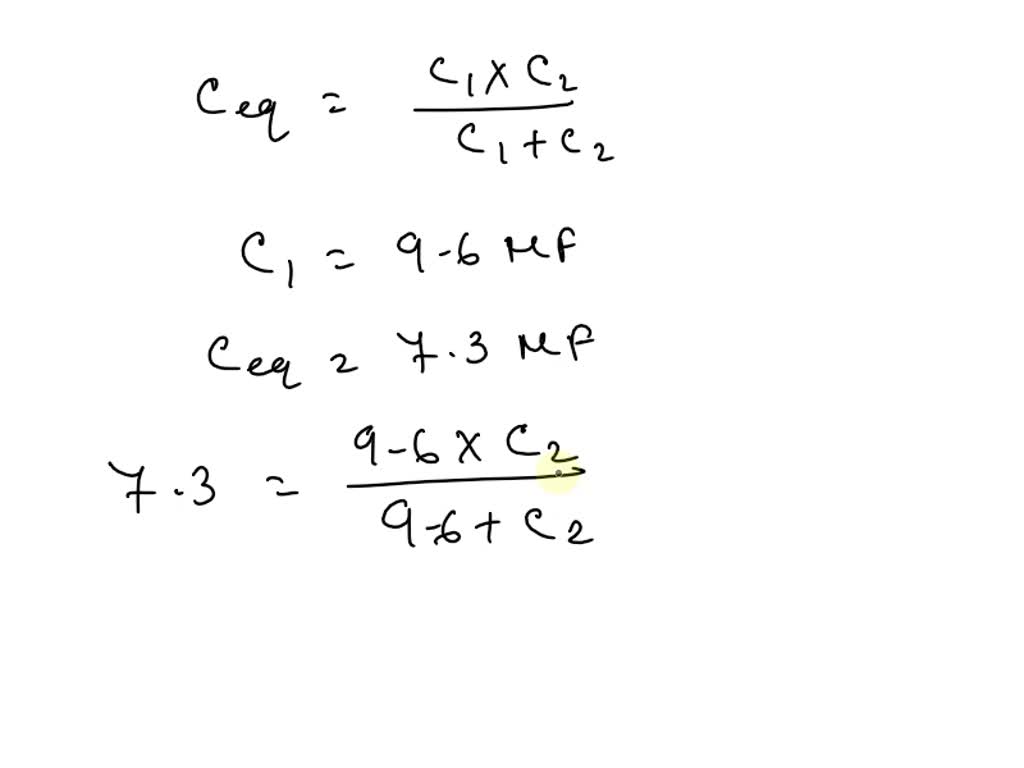 Ceq = C1 × C2 / C1 + C2
C1 = 9.6 μF
Ceq = 7.3 μF
7.3 = 9.6 × C2 / 9.6 + C2